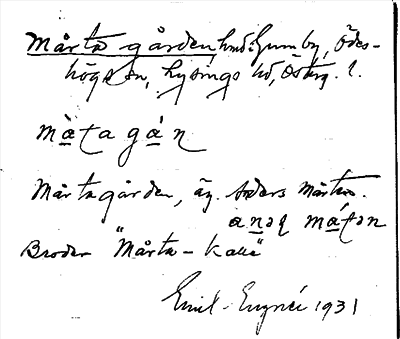 Mårta gården, hmd. Humby, Ödes-
högs sn, Lysings hd, Österg. l.
màtagán
Mårtagården, äg. Anders Mårten.
anəʂ mát̯ən
Broder "Mårta-Kalle"
Emil. 1931